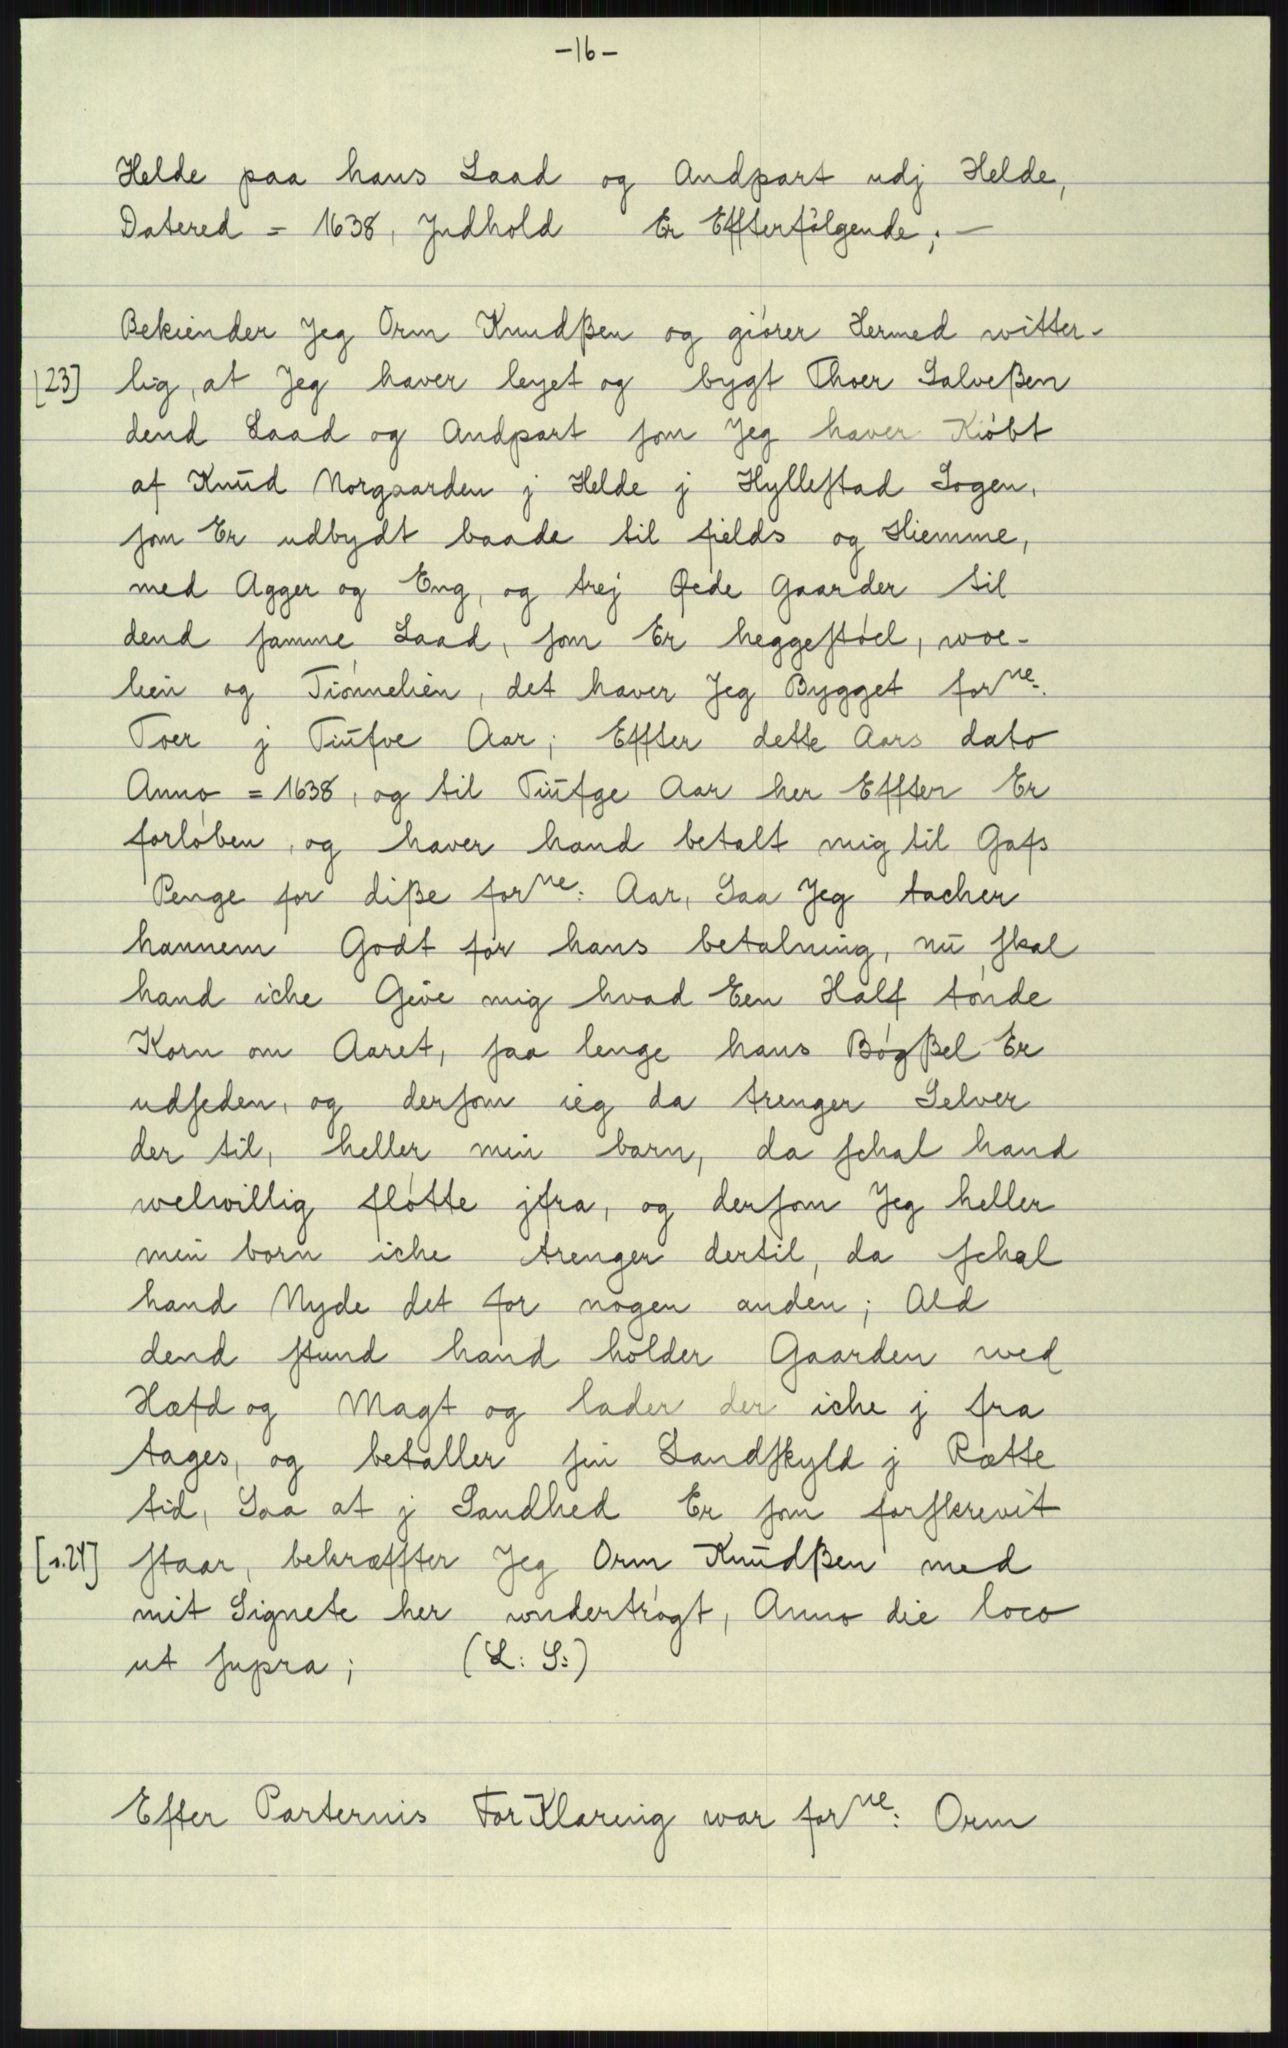 -16-
Helde paa hans Laad og Andpart udj Helde,
Datered = 1638, Jndhold Er Effterfølgende; —
Bekiender Jeg Orm Knudßen og giører Hermed witter-
[23] lig, at Jeg haver leyet og bygt Thoer Salveßen
dend Laad og Andpart som Jeg haver Kiøbt
af Knūd Norgaarden j Helde j Hyllestad Sogen,
som Er udbydt baade til fields og Hiemme,
med Agger og Eng, og trej Øede Gaarder til
dend samme Laad, som Er heggestøel, woe-
lien og Tiønnelien, det haver Jeg Bygget forne:
Toer j Tiūfve Aar; Effter dette Aars dato
Anno = 1638, og til Tiūfge Aar her Effter Er
forløben, og haver hand betalt mig til Gafs
Penge for diße forne: Aar, Saa Jeg tacher
hannem Godt for hans betalning, nū skal
hand iche Give mig hvad Een Half tønde
Korn om Aaret, saa lenge hans Bøgßel Er
udseden, og dersom ieg da trenger Selver
der til, heller min barn, da schal hand
welwillig fløtte jfra, og dersom Jeg heller
min born iche trenger dertil, da schal
hand Nyde det for nogen anden; Ald
dend stund hand holder Gaarden wed
Hæfd og Magt og lader der iche j fra
tages, og betaller sin Landskyld j Rætte
tid, Saa at j Sandhed Er som forskrevit
[s.24] staar, bekræffter Jeg Orm Knūdßen med
mit Signete her wndertrøgt, Anno die loco
ut supra; (L: S:)
Efter Parternis ForKlaring war forne: Orm